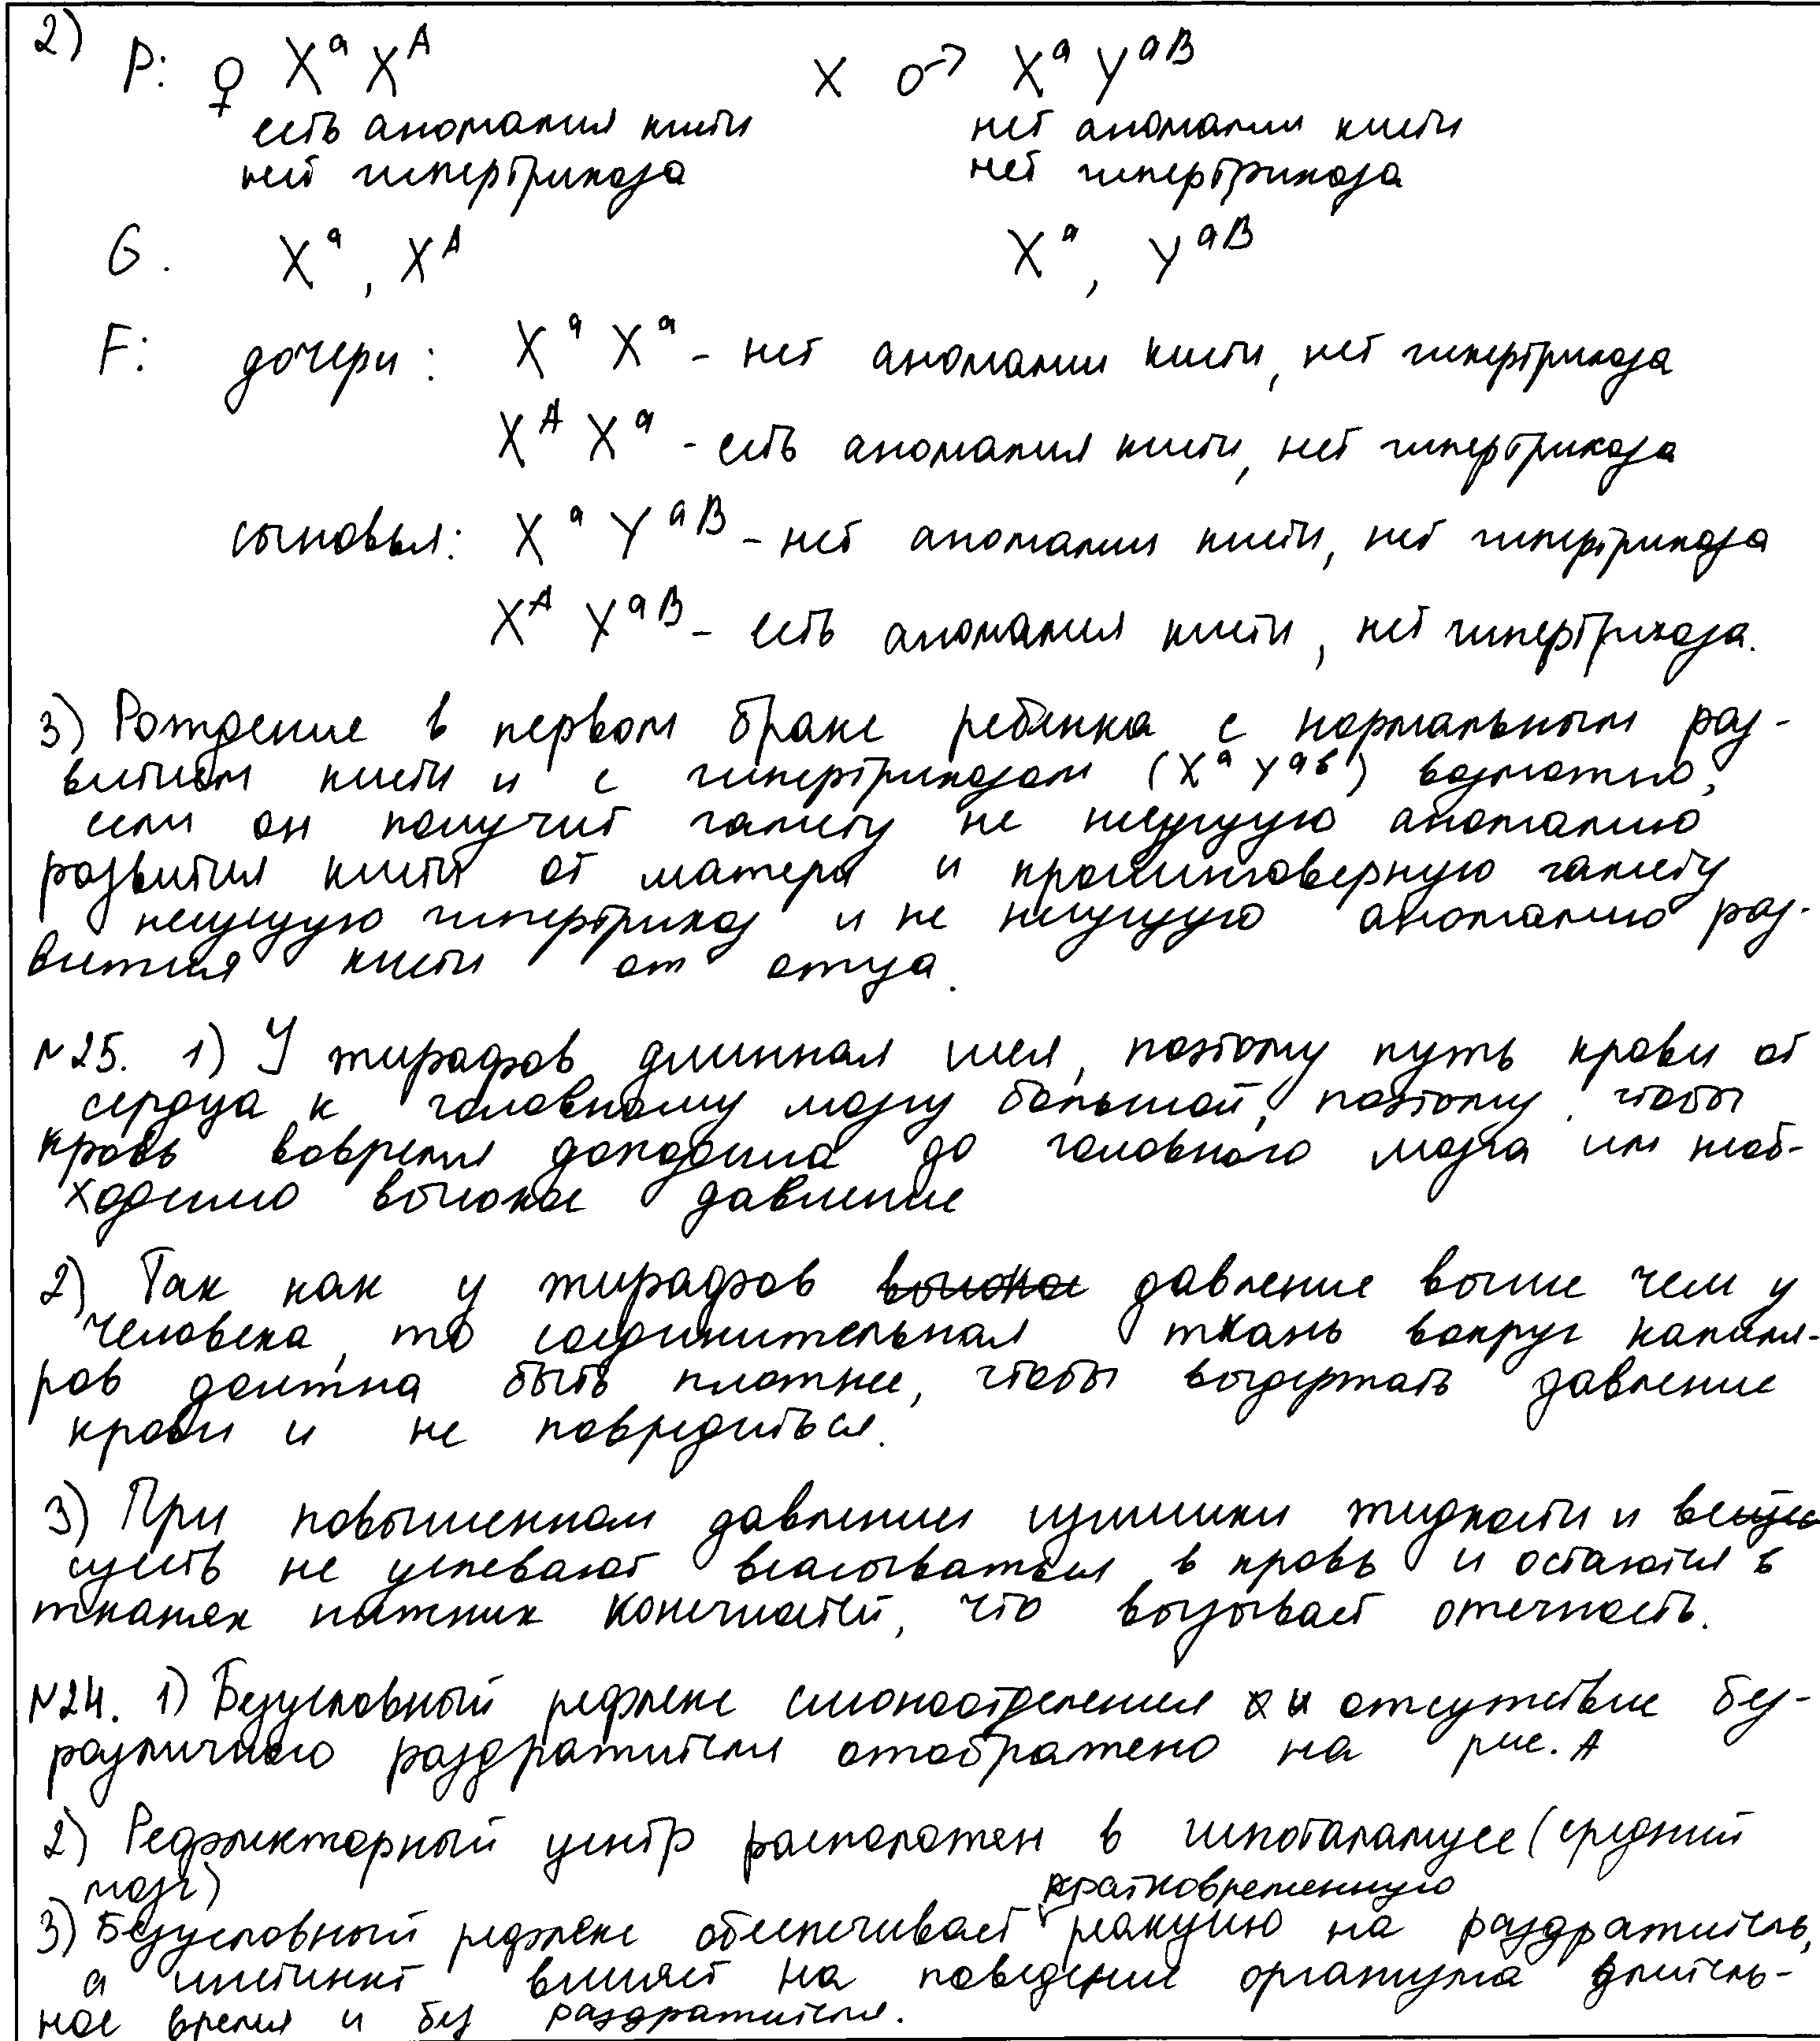 2) P: ♀ X^a X^A х ♂ X^a Y^aB
есть аномалия кисти нет аномалии кисти
нет гипертрихоза нет гипертрихоза
G. X^a, X^A X^a, Y^aB
F: дочери: X^a X^a - нет аномалии кисти, нет гипертрихоза
X^A X^a - есть аномалия кисти, нет гипертрихоза
сыновья: X^a Y^aB - нет аномалии кисти, нет гипертрихоза
X^A Y^aB - есть аномалия кисти, нет гипертрихоза.
3) Рождение в первом браке ребенка с нормальным раз-
витием кисти и с гипертрихозом (X^a Y^ab) возможно,
если он получит гамету не несущую аномалию
развития кисти от матери и кроссинговерную гамету
несущую гипертрихоз и не несущую аномалию раз-
вития кисти от отца.
№25. 1) У жирафов длинная шея, поэтому путь крови от
сердца к головному мозгу большой, поэтому, чтобы
кровь вовремя доходила до головного мозга им необ-
ходимо высокое давление
2) Так как у жирафов давление выше чем у
человека, то соединительная ткань вокруг капиля-
ров должна быть плотнее, чтобы выдержать давление
крови и не повредиться.
3) При повышенном давлении излишки жидкости и
не успевают всасываться в кровь и остаются в
тканях нижних конечностей, что вызывает отечность.
№24. 1) Безусловный рефлекс слюноотделения и отсутствие без-
различного раздражителя отображено на рис. А
2) Рефлекторный центр расположен в гипоталамусе (средний
мозг)
кратковременную
3) Безусловный рефлекс обеспечивает реакцию на раздражитель,
а инстинкт влияет на поведение организма длитель-
ное время и без раздражителя.